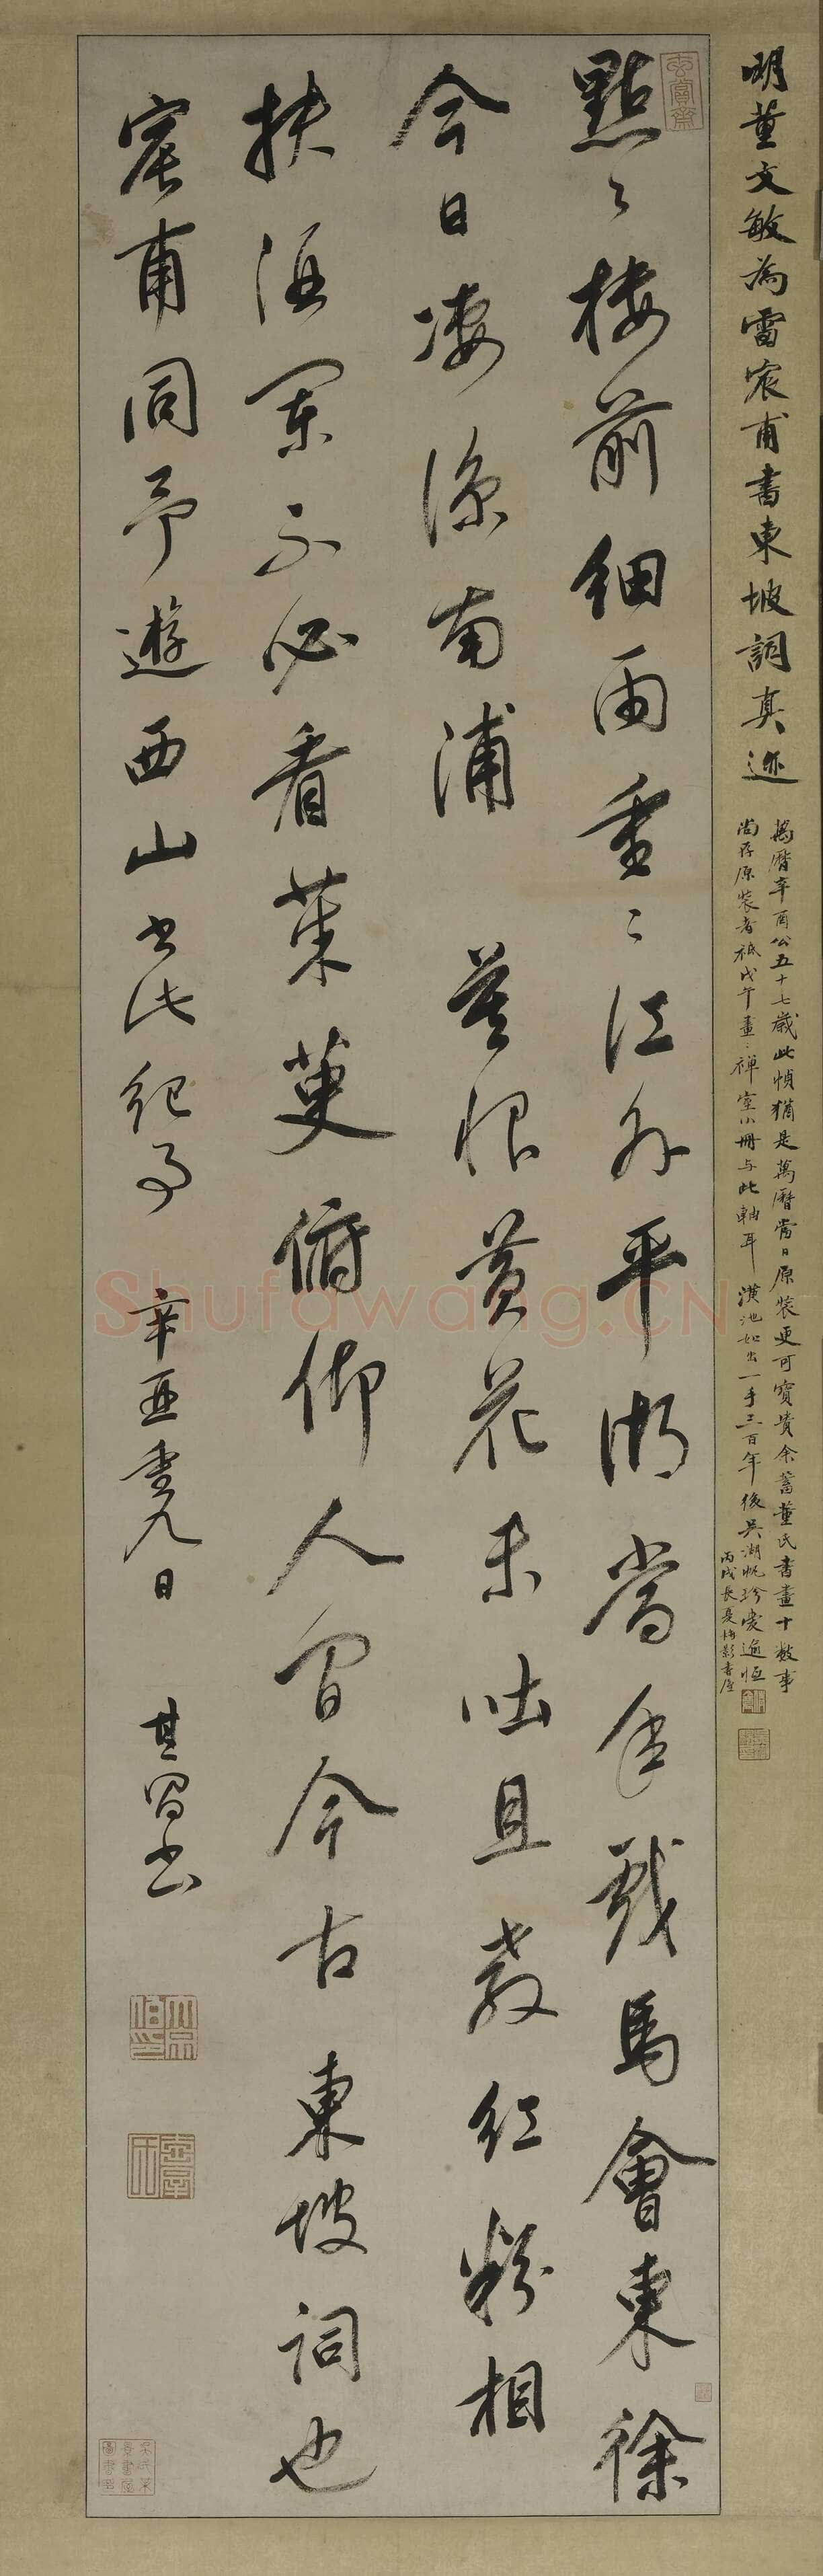 明董文敏為雷宸甫書東坡詞真迹
萬曆辛酉公五十七歲此幀猶是萬曆當日原裝更可寶貴余蓄董氏書畫十數事
尚存原裝者祇戊午畫〻禪室小冊与此軸耳潢池如出一手三百年後吳湖帆珍
丙戌長夏梅影書屋
玄賞齋
點〻樓前細雨重〻江外平湖當年戲馬會東徐
今日凄涼南浦 莫恨黃花未吐且教紅粉相
扶酒闌不必看茱萸俯仰人間今古東坡詞也
宸甫同予遊西山書此紀事 辛亥重九日 其昌書
Shufawang.CN